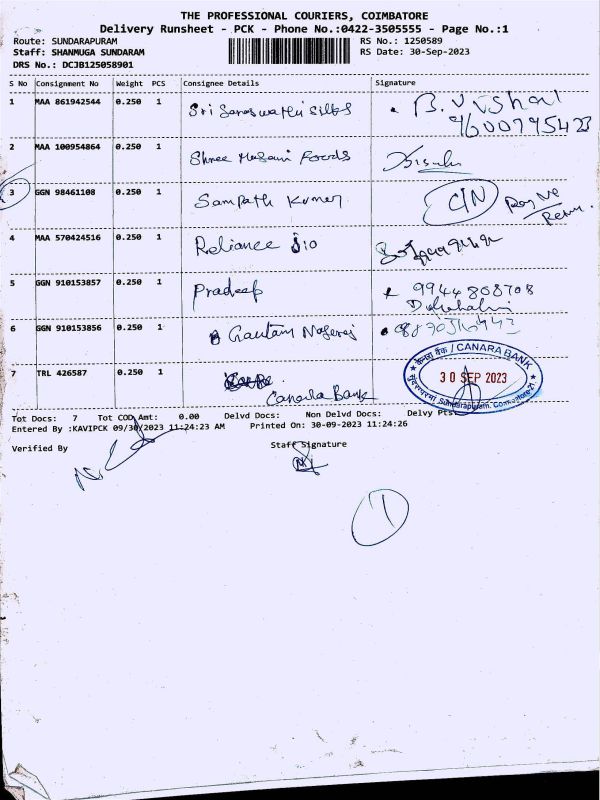 THE PROFESSIONAL COURIERS, COIMBATORE
Delivery Runsheet - PCK - Phone No.:0422-3505555 - Page No.:1
Route: SUNDARAPURAM RS No.: 1250589
Staff: SHANMUGA SUNDARAM RS Date: 30-Sep-2023
DRS No.: DCJB125058901
S No Consignment No Weight PCS Consignee Details Signature
1 MAA 861942544 0.250 1 Sri Saraswathi Silks B. Vishal
9600795423
2 MAA 100954864 0.250 1 Shree Foods
3 GGN 98461108 0.250 1 Sampath Kumar C/N
4 MAA 570424516 0.250 1 Reliance Jio
5 GGN 910153857 1 0.250 1 Pradeep 9944808708
6 GGN 910153856 0.250 1 Gautam Nagaraj
7 TRL 426587 0.250 1 Canara Bank
केनरा बैंक / CANARA BANK
30 SEP 2023
Sundarapuram,
Tot Docs: 7 Tot COD Amt: 0.00 Delvd Docs: Non Delvd Docs: Delvy Pts:
Entered By :KAVIPCK 09/30/2023 11:24:23 AM Printed On: 30-09-2023 11:24:26
Verified By Staff Signature
1